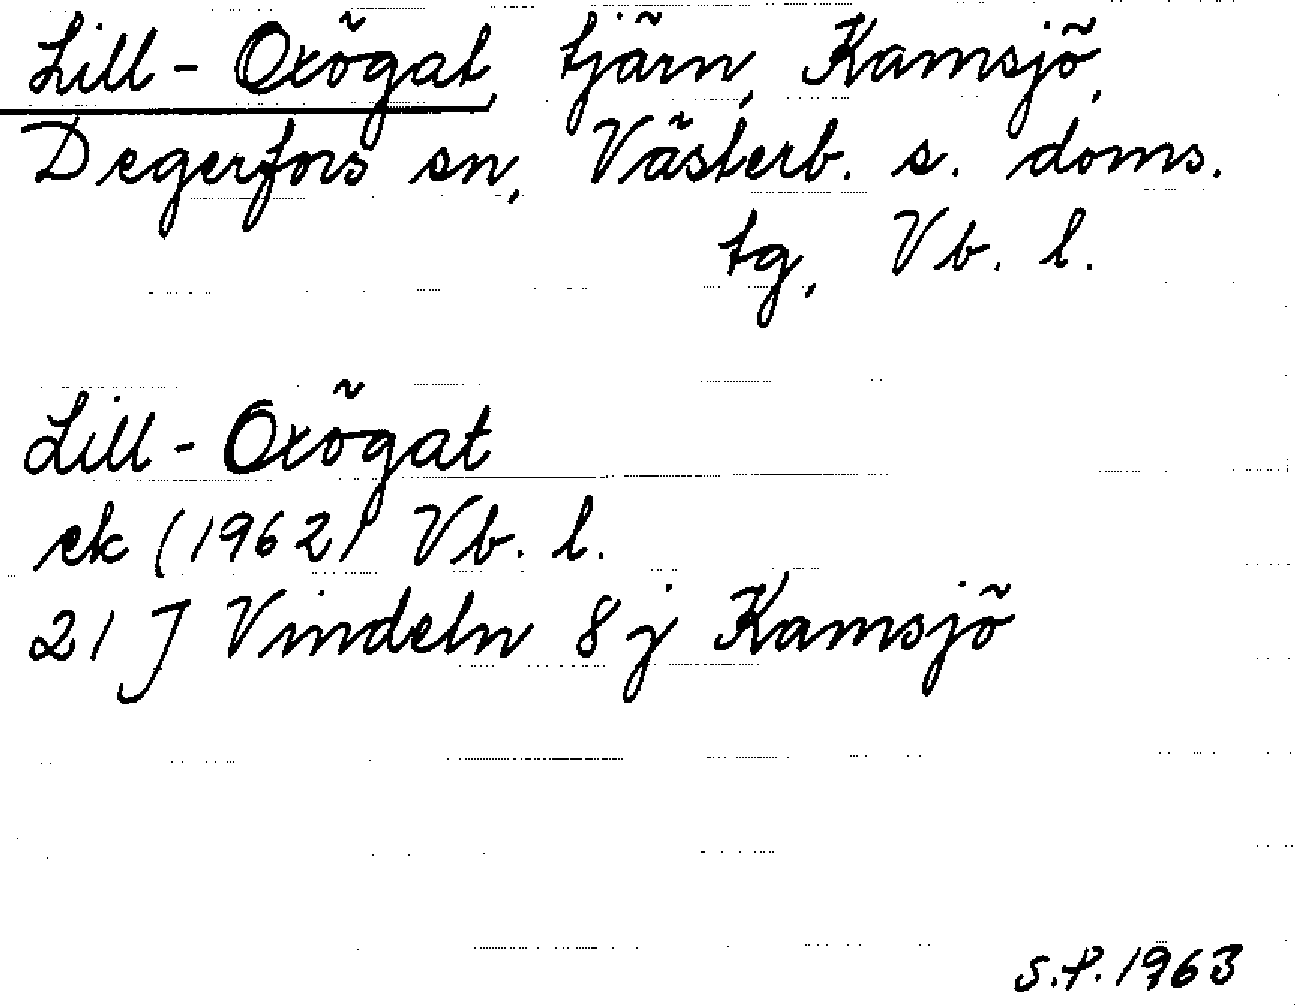 Lill-Oxögat, tjärn, Kamsjö,
Degerfors sn, Västerb. s. doms.
tg, Vb. l.
Lill-Oxögat
ek (1962) Vb. l.
21 J Vindeln 8 j Kamsjö
S.P. 1963